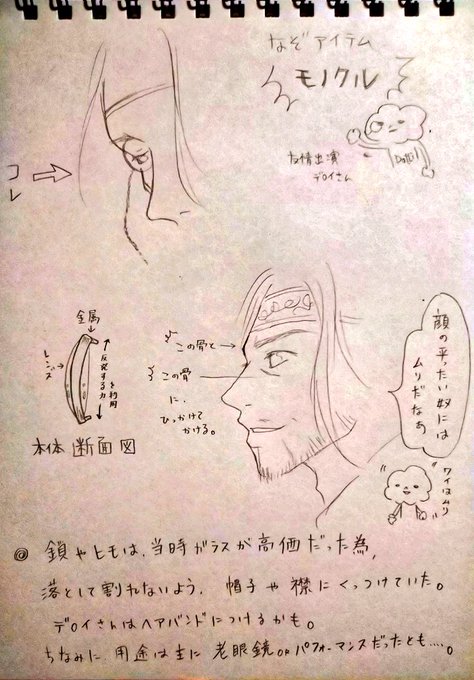 なぞアイテム
モノクル
友情出演
デロイさん
コレ
金属
レンズ
反発する力
を利用
本体 断面図
この骨と
この骨
に、
ひっかけて
かける。
顔の平たい奴には
ムリだなあ
ワイはムリ
◎ 鎖やヒモは、当時ガラスが高価だった為、
落として割れないよう、帽子や襟にくっつけていた。
デロイさんはヘアバンドにつけるかも。
ちなみに、用途は主に老眼鏡orパフォーマンスだったとも…。